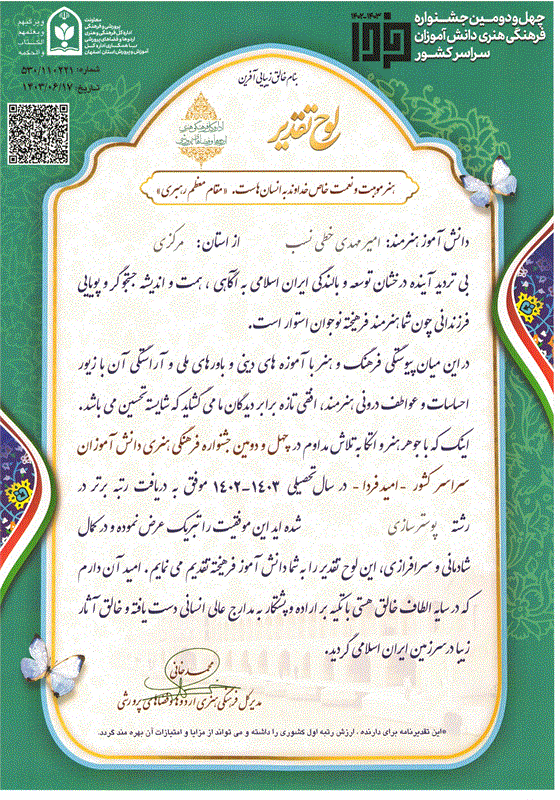 چهل‌و‌دومین جشنواره
فرهنگی هنری دانش‌آموزان
سراسر کشور
۱۴۰۲-۱۴۰۳
فردا
معاونت
پرورشی و فرهنگی
اداره کل فرهنگی و هنری
اردوها و فضاهای پرورشی
با همکاری اداره کل
آموزش و پرورش استان اصفهان
و یزکیهم
و یعلمهم
الکتاب
و الحکمه
شماره: ۵۳۰/۱۱۰۲۲۱
تاریخ: ۱۴۰۳/۰۶/۱۷
بنام خالق زیبایی آفرین
لوح تقدیر
هنر موهبت و نعمت خاص خداوند به انسان هاست. «مقام معظم رهبری»
دانش آموز هنرمند: امیرمهدی خطی نسب از استان: مرکزی
بی تردید آینده درخشان توسعه و بالندگی ایران اسلامی به آگاهی ، همت و اندیشه جستجوگر و پویایی
فرزندانی چون شما هنرمند فرهیخته نوجوان استوار است.
در این میان پیوستگی فرهنگ و هنر با آموزه های دینی و باورهای ملی و آراستگی آن با زیور
احساسات و عواطف درونی هنرمند، افقی تازه برابر دیدگان ما می گشاید که شایسته تحسین می باشد.
اینک که با جوهر هنر و اتکا به تلاش مداوم در چهل و دومین جشنواره فرهنگی هنری دانش آموزان
سراسر کشور -امید فردا- در سال تحصیلی ۱۴۰۳-۱۴۰۲ موفق به دریافت رتبه برتر در
رشته پوسترسازی شده اید این موفقیت را تبریک عرض نموده و در کمال
شادمانی و سرافرازی، این لوح تقدیر را به شما دانش آموز فرهیخته تقدیم می نمایم. امید آن دارم
که در سایه الطاف خالق هستی با تکیه بر اراده و پشتکار به مدارج عالی انسانی دست یافته و خالق آثار
زیبا در سرزمین ایران اسلامی گردید.
محمد خانی
مدیرکل فرهنگی هنری اردوها و فضاهای پرورشی
«این تقدیرنامه برای دارنده ، ارزش رتبه اول کشوری را داشته و می تواند از مزایا و امتیازات آن بهره مند گردد.